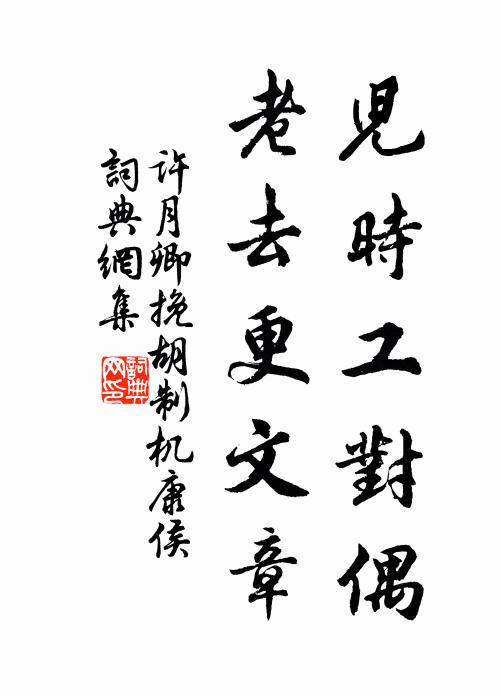 兒時工對偶
老去更文章
許月卿挽胡制机康侯
詞典網集
詞典
网印